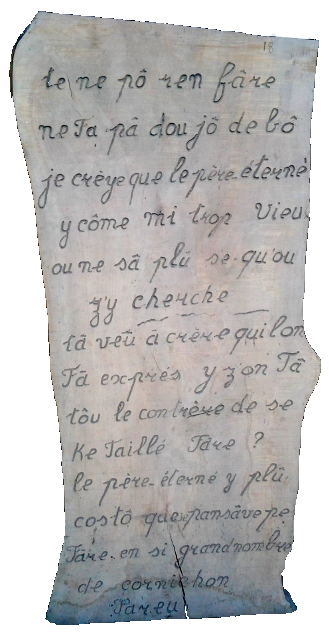 18
te ne pô ren fâre
ne Ta pâ dou jô de bô
je crèye que le père-éterné
y côme mi trop vieu
ou ne sâ plû se-qu'ou
z'y cherche
tâ veû â crère qui lon
Tâ exprés y z'on Tâ
tôu le contrêre de se
Ke Taillé Târe ?
le père-éterné y plû
costô que pansâve pe
Târe-en si grand nombre
de cornichon
Tareu